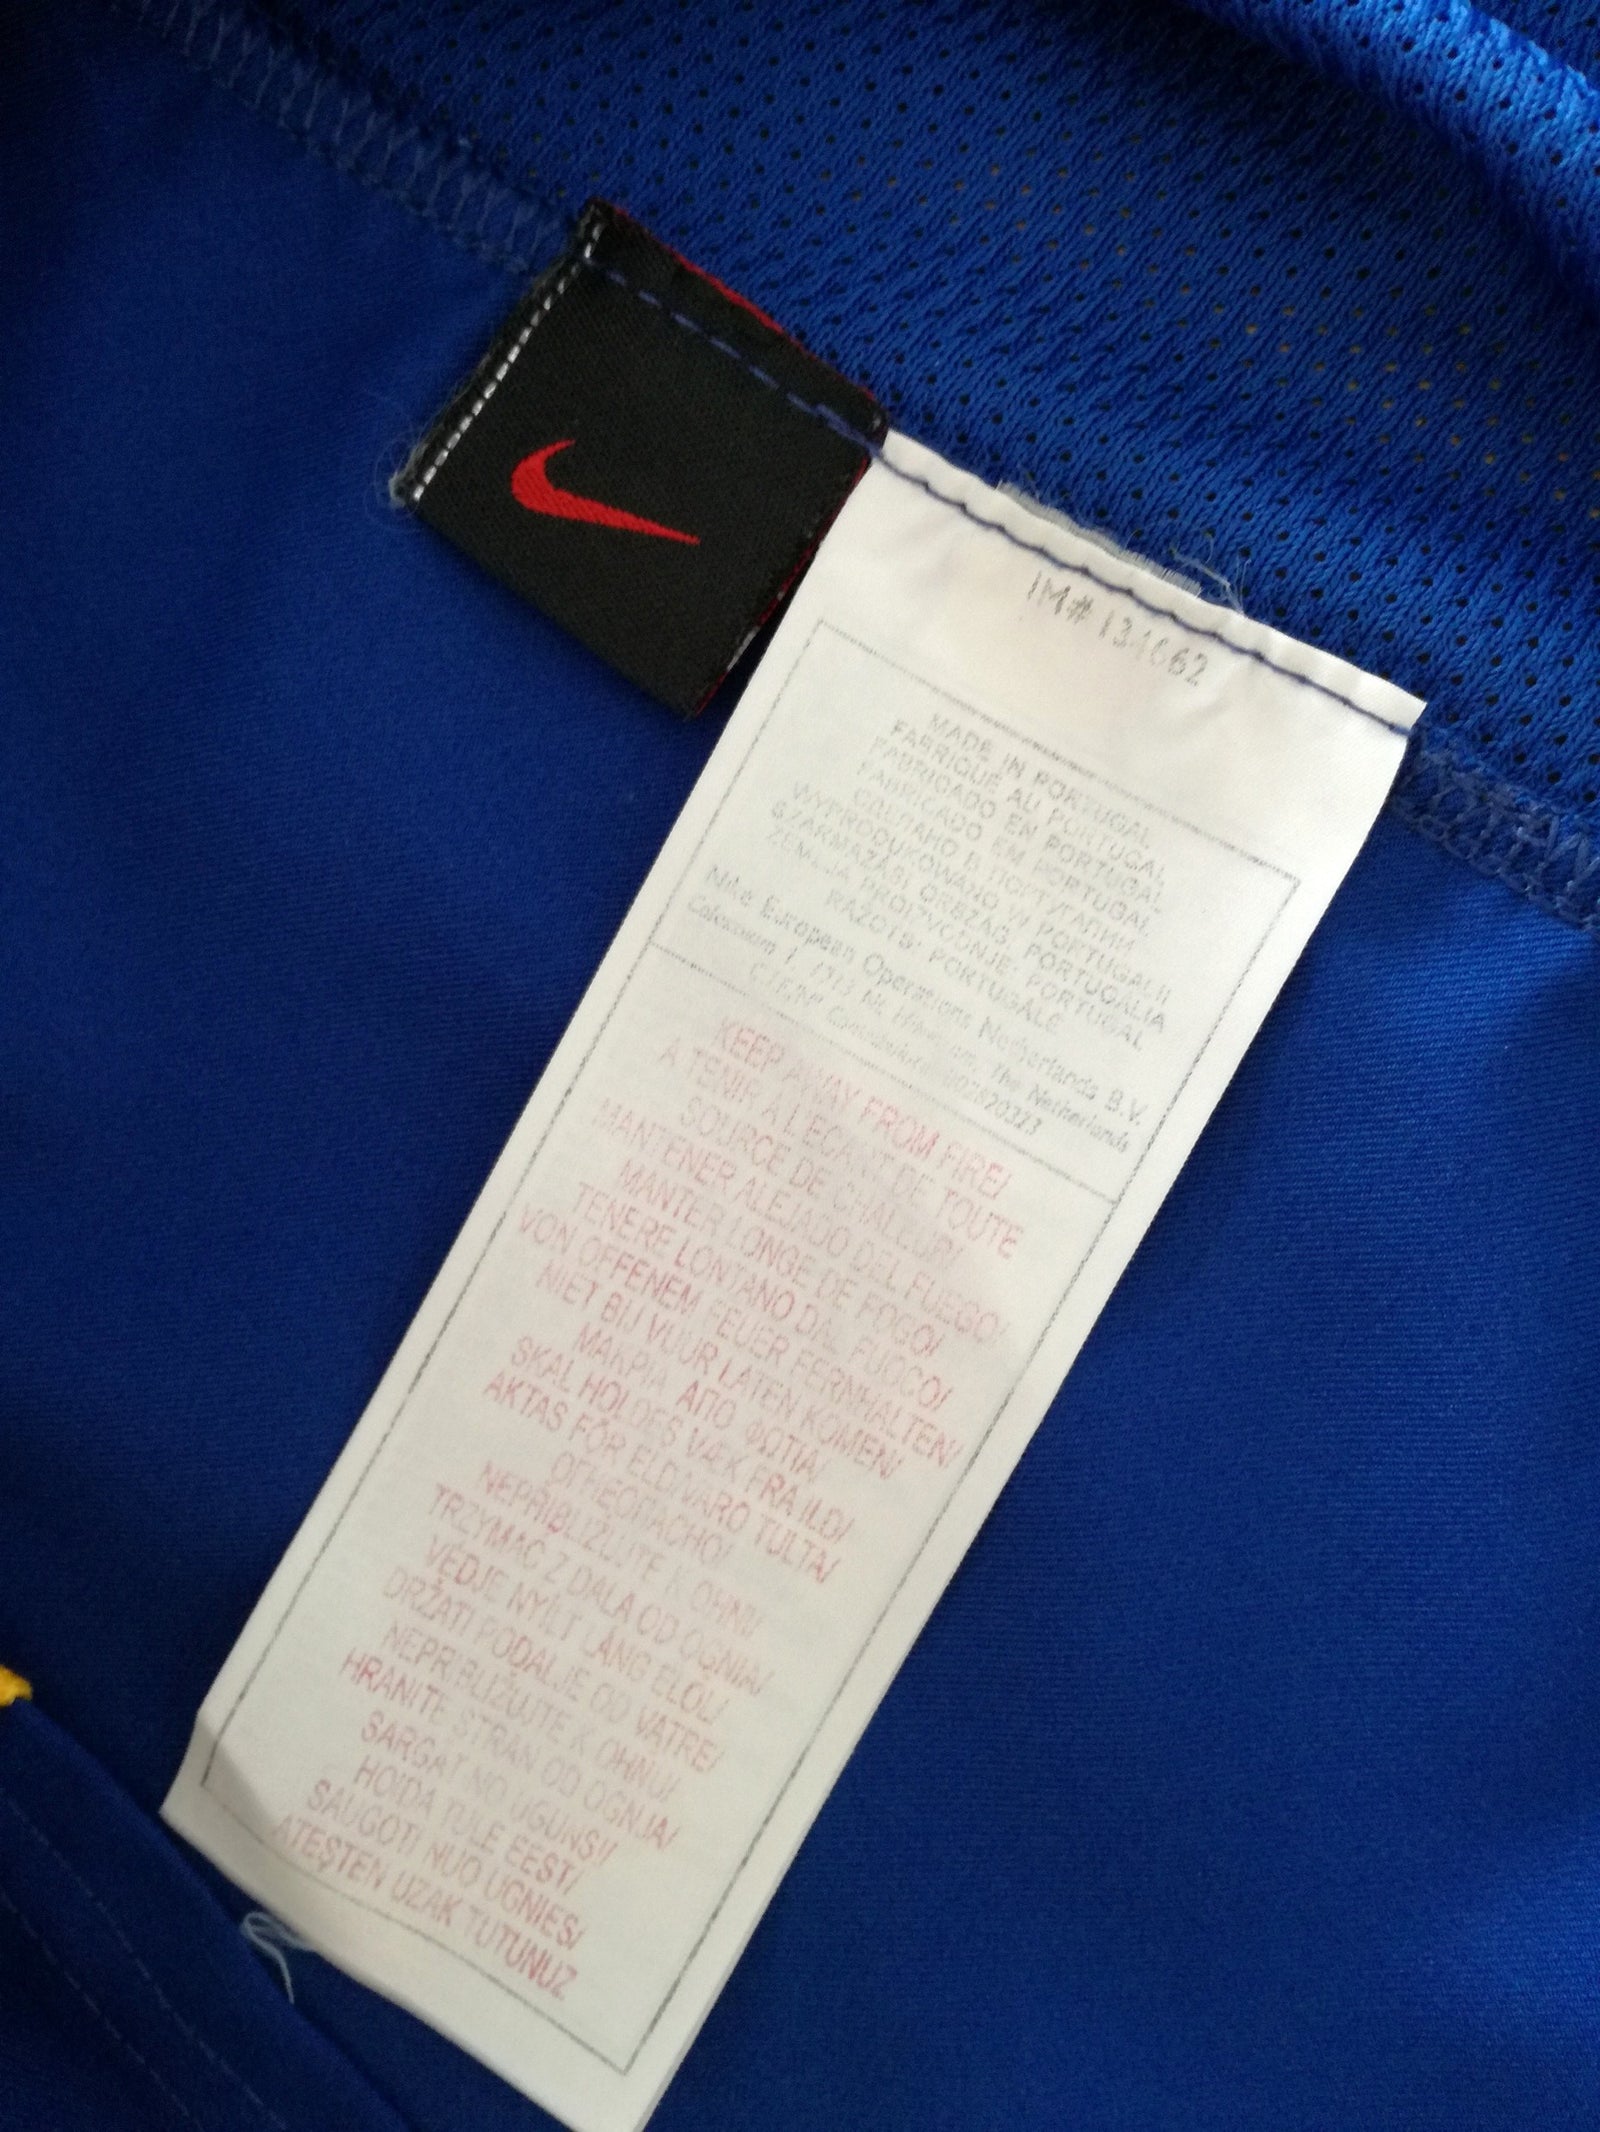 MADE IN PORTUGAL
FABRIQUÉ AU PORTUGAL
FABRICADO EN PORTUGAL
FABRICADO EM PORTUGAL
СДЕЛАНО В ПОРТУГАЛИИ
WYPRODUKOWANO W PORTUGALII
SZÁRMAZÁSI ORSZÁG: PORTUGÁLIA
ZEMLJA PROIZVODNJE: PORTUGAL
RAŽOTS: PORTUGĀLE
Nike European Operations Netherlands B.V.
Colosseum 1 1213 NL The Netherlands
KEEP AWAY FROM FIRE/
A TENIR A L'ECART DE TOUTE
SOURCE DE CHALEUR/
MANTENER ALEJADO DEL FUEGO/
MANTER LONGE DE FOGO/
TENERE LONTANO DAL FUOCO/
VON OFFENEM FEUER FERNHALTEN/
NIET BIJ VUUR LATEN KOMEN/
ΜΑΚΡΙΑ ΑΠΟ ΦΩΤΙΑ/
SKAL HOLDES VÆK FRA ILD/
AKTAS FÖR ELD/VARO TULTA/
ОГНЕОПАСНО/
NEPŘIBLIŽUJTE K OHNI/
TRZYMAC Z DALA OD OGNIA/
VÉDJE NYÍLT LÁNG ELÖL/
DRŽATI PODALJE OD VATRE/
NEPRIBLIŽUJTE K OHNU/
HRANITE STRAN OD OGNJA/
SARGAT NO UGUNS!/
HOIDA TULE EEST/
SAUGOTI NUO UGNIES/
ATEŞTEN UZAK TUTUNUZ